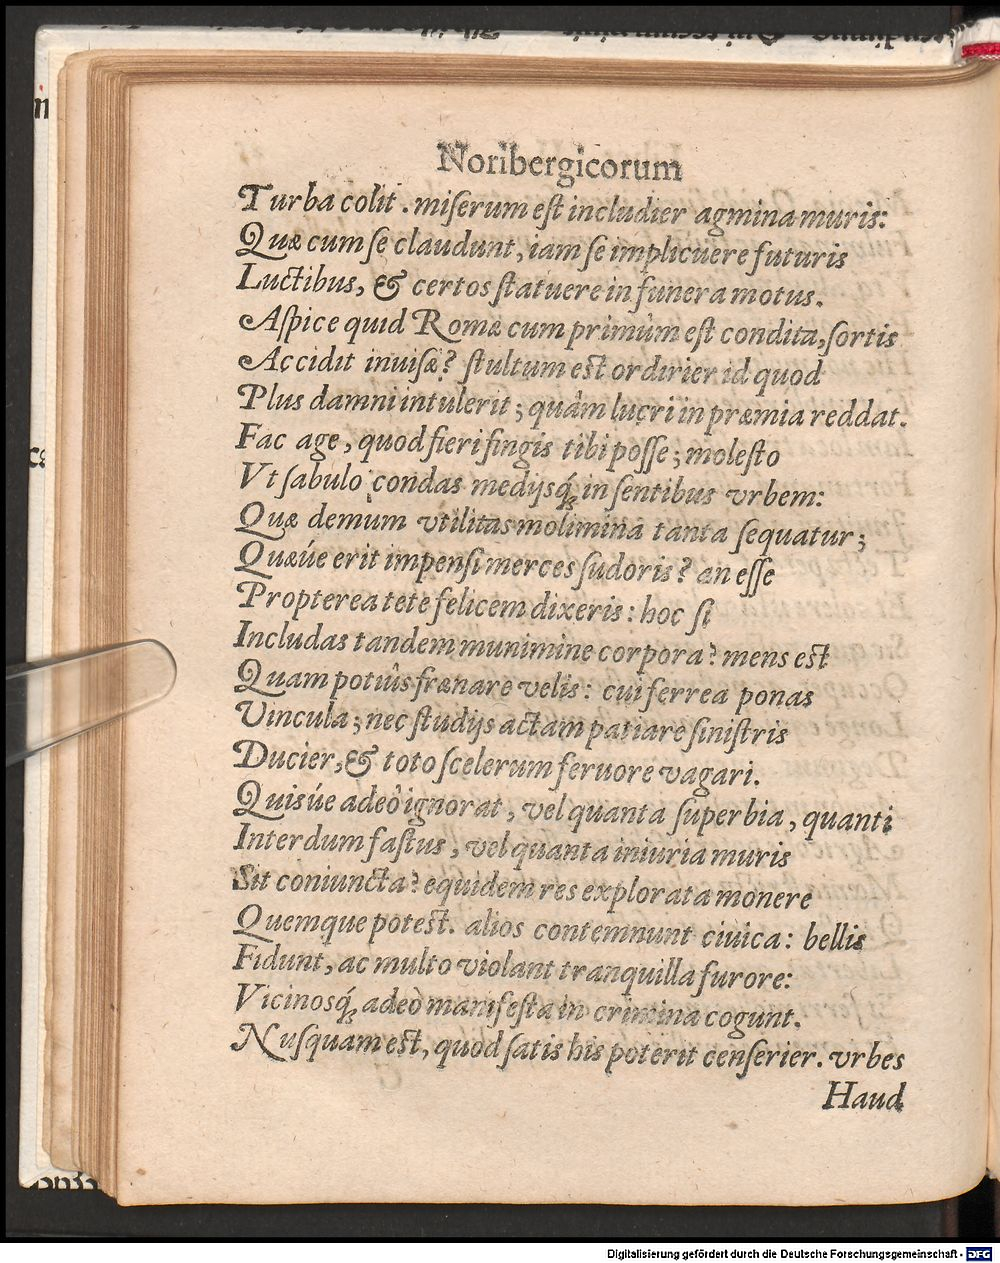 Noribergicorum
Turba colit. miserum est includier agmina muris:
Quæ cum se claudunt, iam se implicuere futuris
Luctibus, & certos statuere in funera motus.
Aspice quid Romæ cum primùm est condita, sortis
Accidit inuisæ? stultum est ordirier id quod
Plus damni intulerit; quàm lucri in præmia reddat.
Fac age, quod fieri fingis tibi posse; molesto
Vt sabulo condas medijsq́; in sentibus vrbem:
Quæ demum vtilitas molimina tanta sequatur;
Quæúe erit impensi merces sudoris? an esse
Propterea tete felicem dixeris: hoc si
Includas tandem munimine corpora? mens est
Quam potiùs frænare velis: cui ferrea ponas
Vincula; nec studijs actam patiare sinistris
Ducier, & toto scelerum feruore vagari.
Quisúe adeò ignorat, vel quanta superbia, quanti
Interdum fastus, vel quanta iniuria muris
Sit coniuncta? equidem res explorata monere
Quemque potest. alios contemnunt ciuica: bellis
Fidunt, ac multo violant tranquilla furore:
Vicinosq́; adeò manifesta in crimina cogunt.
Nusquam est, quod satis his poterit censerier. vrbes
Haud
Digitalisierung gefördert durch die Deutsche Forschungsgemeinschaft - DFG